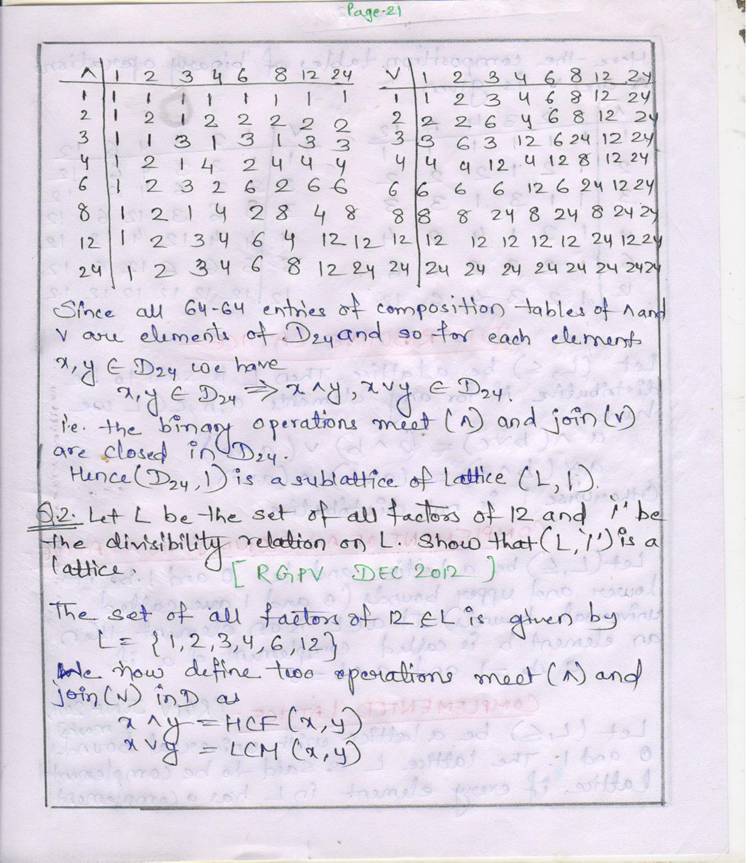 Page-21
∧ | 1 2 3 4 6 8 12 24 ∨ | 1 2 3 4 6 8 12 24
1 | 1 1 1 1 1 1 1 1 1 | 1 2 3 4 6 8 12 24
2 | 1 2 1 2 2 2 2 2 2 | 2 2 6 4 6 8 12 24
3 | 1 1 3 1 3 1 3 3 3 | 3 6 3 12 6 24 12 24
4 | 1 2 1 4 2 4 4 4 4 | 4 4 12 4 12 8 12 24
6 | 1 2 3 2 6 2 6 6 6 | 6 6 6 12 6 24 12 24
8 | 1 2 1 4 2 8 4 8 8 | 8 8 24 8 24 8 24 24
12 | 1 2 3 4 6 4 12 12 12 | 12 12 12 12 12 24 12 24
24 | 1 2 3 4 6 8 12 24 24 | 24 24 24 24 24 24 24 24
Since all 64-64 entries of composition tables of ∧ and
∨ are elements of D24 and so for each element
x, y ∈ D24 we have
x, y ∈ D24 ⇒ x∧y, x∨y ∈ D24.
i.e. the binary operations meet (∧) and join (∨)
are closed in D24.
Hence (D24, 1) is a sublattice of lattice (L, 1).
Q.2. Let L be the set of all factors of 12 and '/' be
the divisibility relation on L. Show that (L, '/') is a
lattice. [RGPV DEC 2012]
The set of all factors of 12 ∈ L is given by
L = {1, 2, 3, 4, 6, 12}
We now define two operations meet (∧) and
join (∨) in D as
x ∧ y = HCF (x, y)
x ∨ y = LCM (x, y)